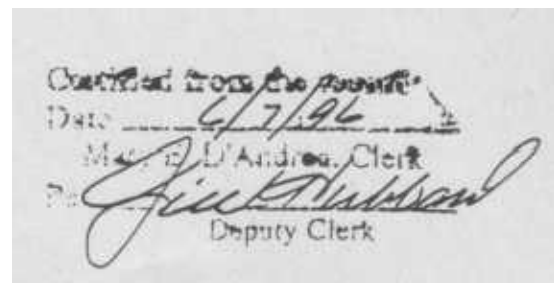 Certified from the record
Date 6/7/96
Mary E. D'Andrea, Clerk
Per
Deputy Clerk